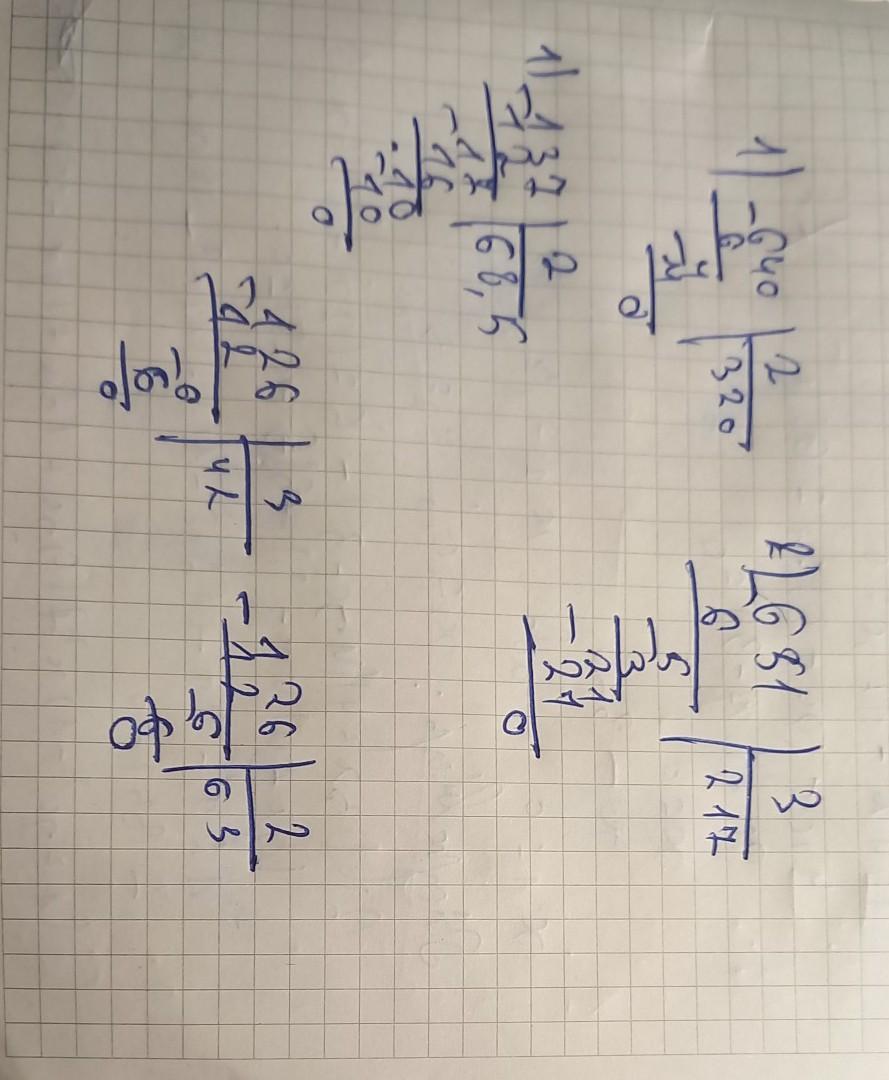 1) -640 | 2
6 | 320
4
-4
0
2) -651 | 3
6 | 217
5
-3
21
-21
0
1) -137 | 2
-12 | 68,5
17
-16
10
-10
0
126 | 3
-12 | 42
-6
6
0
-126 | 2
12 | 63
-6
6
0